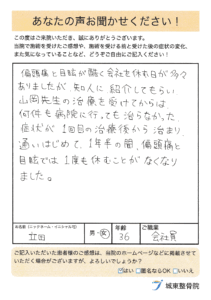 あなたの声お聞かせください！
この度はご来院いただき、誠にありがとうございます。
当院で施術を受けたご感想や、施術を受ける前と受けた後の症状の変化、
また気になっていることなど、どうぞご自由にご記入ください！
偏頭痛と目眩が酷く会社も休む日が多々
ありましたが 知人に 紹介してもらい
山岡先生の治療を受けてからは
何件も病院に行っても治らなかった
症状が 1回目の治療後から治まり、
通いはじめて、1年半の間、偏頭痛と
目眩では 1度も休むことがなくなり
ました。
お名前（ニックネーム・イニシャル可）
男・女
年齢
ご職業
立田
36
会社員
ご記入いただいた患者様のご感想は、当院のホームページなどに掲載させて
いただく場合がございますが、よろしいでしょうか？
はい 匿名なら OK いいえ
城東整骨院